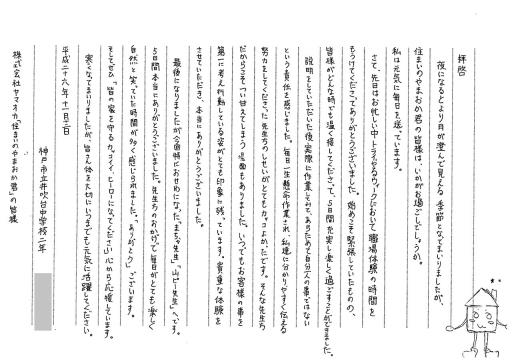 拝啓
夜になるとより月が澄んで見える季節となってまいりましたが、
住まいのやまおか君の皆様は、いかがお過ごしでしょうか。
私は元気に毎日を送っています。
さて、先日はお忙しい中トライやるウィークにおいて職場体験の時間を
もうけてくださってありがとうございました。始めこそ緊張していたものの、
皆様がどんな時でも温かく接してくださって、5日間充実し楽しく過ごすことができました。
説明をしていただいた後、実際に作業してみて、あらためて自分一人の事ではない
という責任を感じました。毎日一生懸命作業され、私達に分かりやすく伝える
努力をしてくださった先生ちのしせいがとてもカッコよかったです。そんな先生ち
だからこそつい甘えてしまう場面もありました。いつでもお客様の事を
第一に考え行動している姿がとても印象に残っています。貴重な体験を
させていただき、本当にありがとうございました。
最後になりましたが今回特にお世わになった、まちゃ先生、山ピー先生へです。
5日間本当にありがとうございました。先生ちのおかげで毎日がとても楽しく
自然と笑っていた時間が多く感じられました。「ありがとう」でございます。
そしてぜひ「皆の家を守るカッコイイヒーロー」になってください。心から応援しています。
寒くなってまいりましたが、皆さん体を大切に、いつまでも元気に活躍してください。
平成二十六年十一月二日
神戸市立井吹台中学校二年
株式会社ヤマオカ「住まいのやまおか君」の皆様